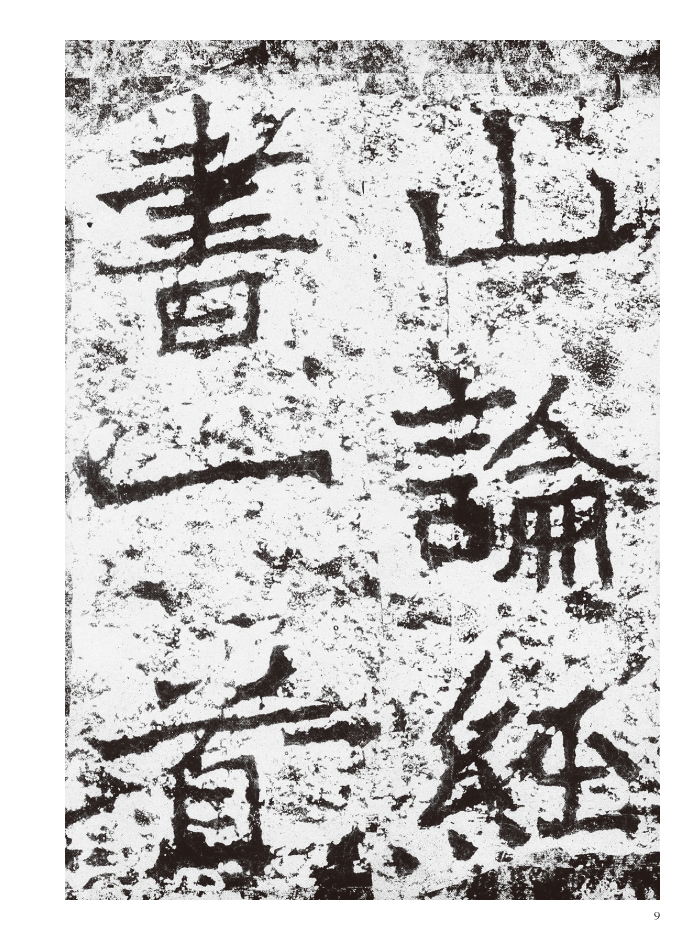 山論經
書一首
9